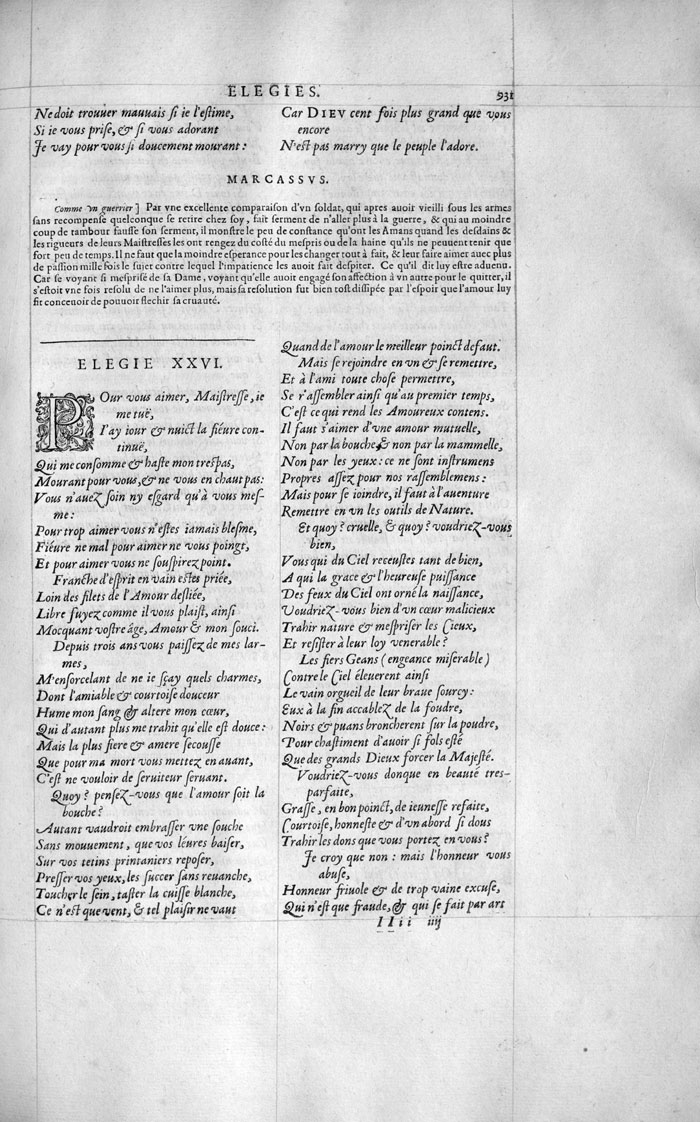 ELEGIES.
931
Ne doit trouuer mauuais si ie l'estime,
Si ie vous prise, & si vous adorant
Je vay pour vous si doucement mourant :
Car DIEV cent fois plus grand que vous
encore
N'est pas marry que le peuple l'adore.
MARCASSVS.
Comme vn guerrier] Par vne excellente comparaison d'vn soldat, qui apres auoir vieilli sous les armes
sans recompense quelconque se retire chez soy, fait serment de n'aller plus à la guerre, & qui au moindre
coup de tambour fausse son serment, il monstre le peu de constance qu'ont les Amans quand les desdains &
les rigueurs de leurs Maistresses les ont rengez du costé du mespris ou de la haine qu'ils ne peuuent tenir que
fort peu de temps. Il ne faut que la moindre esperance pour les changer tout à fait, & leur faire aimer auec plus
de passion mille fois le sujet contre lequel l'impatience les auoit fait despiter. Ce qu'il dit luy estre aduenu.
Car se voyant si mesprisé de sa Dame, voyant qu'elle auoit engagé son affection à vn autre pour le quitter, il
s'estoit vne fois resolu de ne l'aimer plus, mais sa resolution fut bien tost dissipée par l'espoir que l'amour luy
fit conceuoir de pouuoir flechir sa cruauté.
ELEGIE XXVI.
POur vous aimer, Maistresse, ie
me tuë,
I'ay iour & nuict la fiéure con-
tinuë,
Qui me consomme & haste mon trespas,
Mourant pour vous, & ne vous en chaut pas:
Vous n'auez soin ny esgard qu'à vous mes-
me :
Pour trop aimer vous n'estes iamais blesme,
Fiéure ne mal pour aimer ne vous poingt,
Et pour aimer vous ne souspirez point.
Franche d'esprit en vain estes priée,
Loin des filets de l'Amour desliée,
Libre fuyez comme il vous plaist, ainsi
Mocquant vostre âge, Amour & mon souci.
Depuis trois ans vous paissez de mes lar-
mes,
M'ensorcelant de ne ie sçay quels charmes,
Dont l'amiable & courtoise douceur
Hume mon sang & altere mon cœur,
Qui d'autant plus me trahit qu'elle est douce :
Mais la plus fiere & amere secousse
Que pour ma mort vous mettez en auant,
C'est ne vouloir de seruiteur seruant.
Quoy ? pensez-vous que l'amour soit la
bouche ?
Autant vaudroit embrasser vne souche
Sans mouuement, que vos léures baiser,
Sur vos tetins printaniers reposer,
Presser vos yeux, les succer sans reuanche,
Toucher le sein, taster la cuisse blanche,
Ce n'est que vent, & tel plaisir ne vaut
Quand de l'amour le meilleur poinct defaut.
Mais se rejoindre en vn & se remettre,
Et à l'ami toute chose permettre,
Se r'assembler ainsi qu'au premier temps,
C'est ce qui rend les Amoureux contens.
Il faut s'aimer d'vne amour mutuelle,
Non par la bouche & non par la mammelle,
Non par les yeux : ce ne sont instrumens
Propres assez pour nos rassemblemens :
Mais pour se ioindre, il faut à l'auenture
Remettre en vn les outils de Nature.
Et quoy ? cruelle, & quoy ? voudriez-vous
bien,
Vous qui du Ciel receustes tant de bien,
A qui la grace & l'heureuse puissance
Des feux du Ciel ont orné la naissance,
Voudriez-vous bien d'vn cœur malicieux
Trahir nature & mespriser les Cieux,
Et resister à leur loy venerable ?
Les fiers Geans (engeance miserable)
Contre le Ciel éleuerent ainsi
Le vain orgueil de leur braue sourcy :
Eux à la fin accablez de la foudre,
Noirs & puans broncherent sur la poudre,
Pour chastiment d'auoir si fols esté
Que des grands Dieux forcer la Majesté.
Voudriez-vous donque en beauté tres-
parfaite,
Grasse, en bon poinct, de ieunesse refaite,
Courtoise, honneste & d'vn abord si dous
Trahir les dons que vous portez en vous ?
Je croy que non : mais l'honneur vous
abuse,
Honneur friuole & de trop vaine excuse,
Qui n'est que fraude, & qui se fait par art
IIii iiij